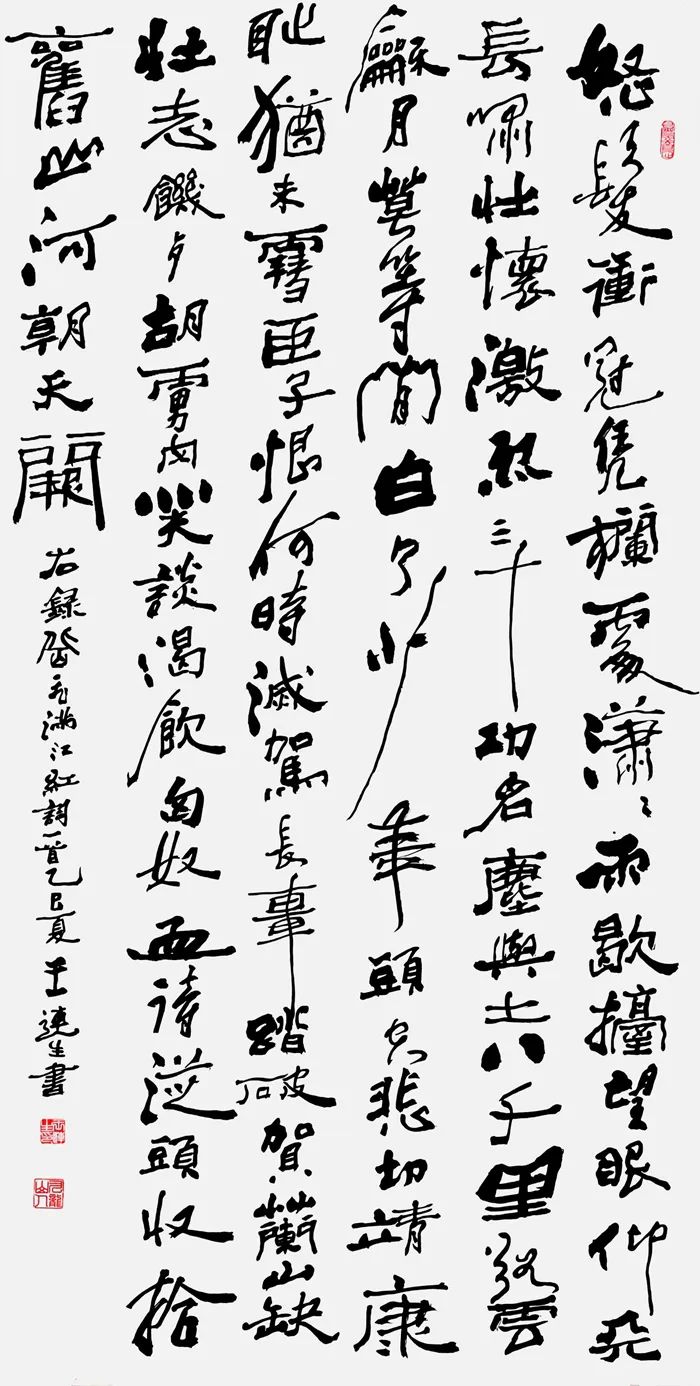 怒髮衝冠凭欄處瀟〻雨歇擡望眼仰天
長嘯壯懷激烈三十功名塵與土八千里路雲
龢月莫等閒白了少年頭空悲切靖康
耻猶未雪臣子恨何時滅駕長車踏破賀蘭山缺
壯志饑歺胡虜肉笑談渴飲匈奴血待從頭收拾
舊山河朝天闕
右錄岳飛滿江紅詞一首乙巳夏 王生書